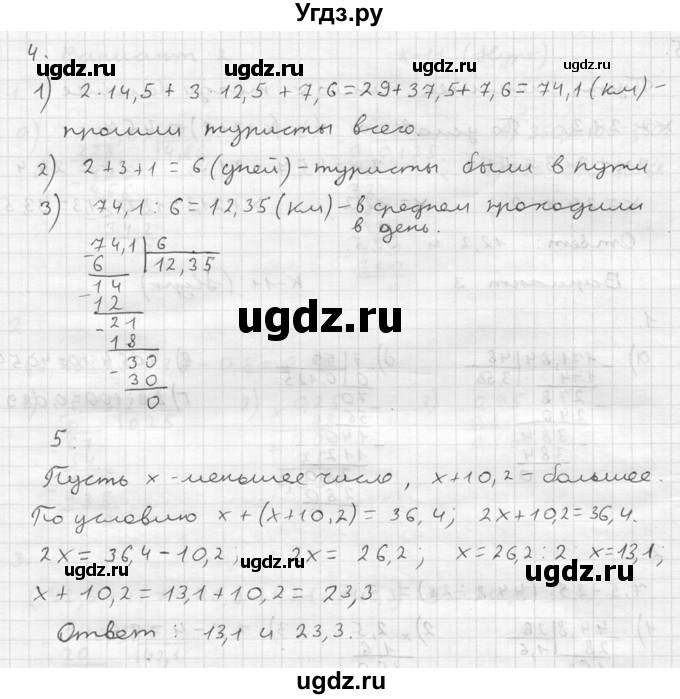 Угдз.ру
4.
1) 2·14,5 + 3·12,5 + 7,6 = 29 + 37,5 + 7,6 = 74,1 (км) -
прошли туристы всего.
2) 2+3+1 = 6 (дней) - туристы были в пути
3) 74,1 : 6 = 12,35 (км) - в среднем проходили
в день.
74,1 | 6
6 | 12,35
14
12
21
18
30
30
0
5
Пусть x - меньшее число, x+10,2 - большее.
По условию x + (x+10,2) = 36,4; 2x+10,2 = 36,4.
2x = 36,4 - 10,2; 2x = 26,2; x = 26,2 : 2; x = 13,1;
x + 10,2 = 13,1 + 10,2 = 23,3
Ответ: 13,1 и 23,3.
ugdz.ru
ugdz.ru
ugdz.ru
ugdz.ru
ugdz.ru
ugdz.ru
ugdz.ru
ugdz.ru
ugdz.ru
ugdz.ru
ugdz.ru
Угдз.ру